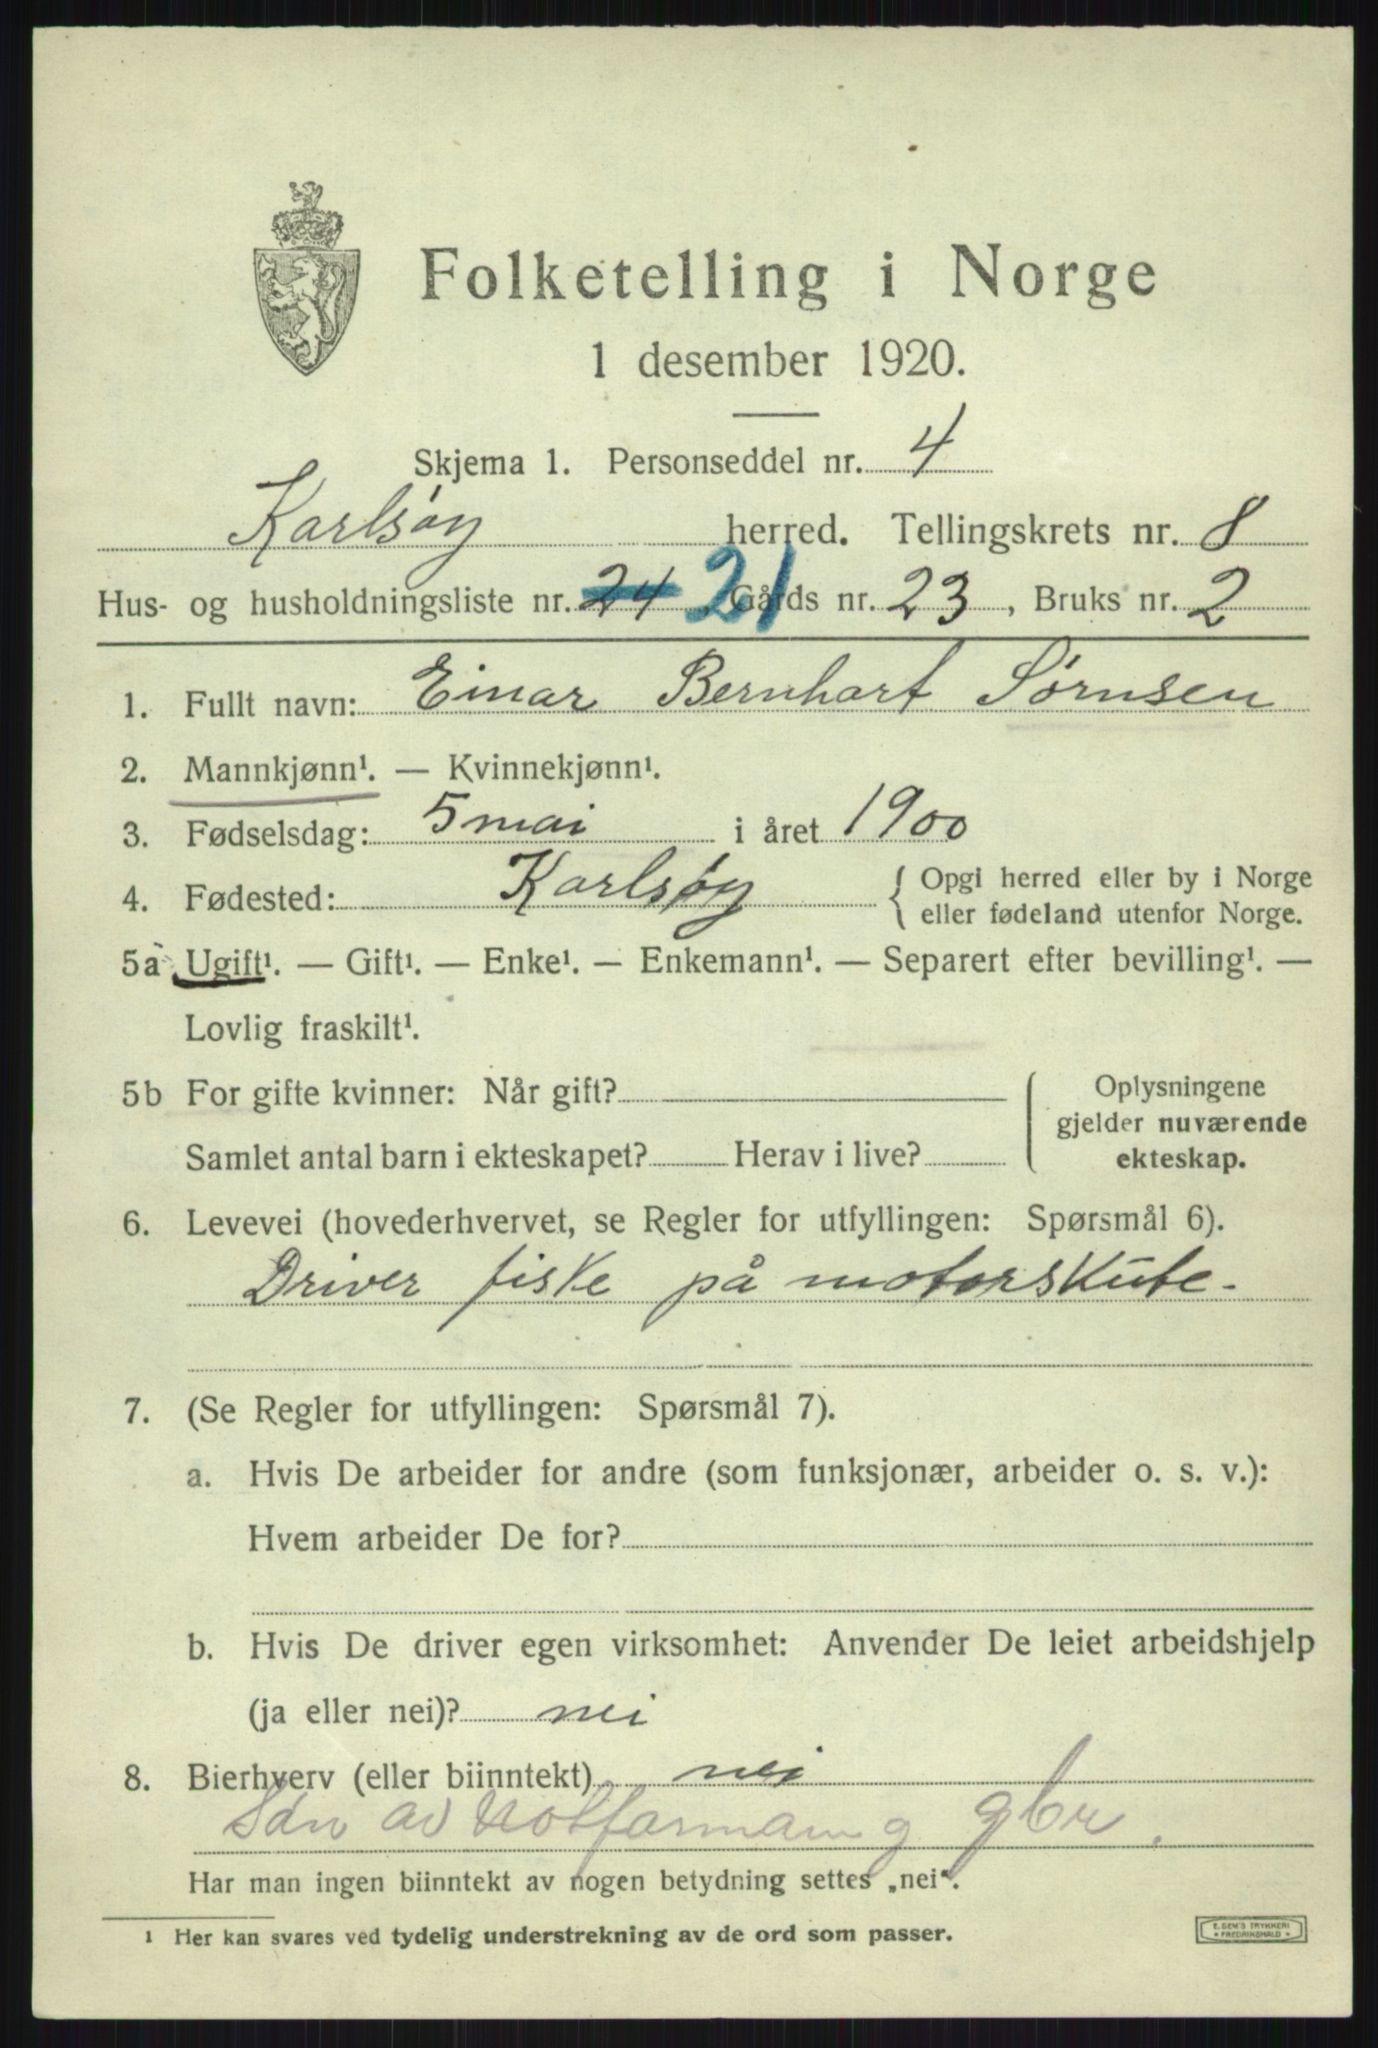 Folketelling i Norge
1 desember 1920.
Skjema 1. Personseddel nr. 4
Karlsøy herred. Tellingskrets nr. 8
Hus- og husholdningsliste nr. 24 21, Gårds nr. 23, Bruks nr. 2
1. Fullt navn: Einar Bernhart Sørnsen
2. Mannkjønn¹. — Kvinnekjønn¹.
3. Fødselsdag: 5 mai i året 1900
4. Fødested: Karlsøy { Opgi herred eller by i Norge
eller fødeland utenfor Norge.
5a Ugift¹. — Gift¹. — Enke¹. — Enkemann¹. — Separert efter bevilling¹. —
Lovlig fraskilt¹.
5b For gifte kvinner: Når gift?
Samlet antal barn i ekteskapet? Herav i live?
Oplysningene
gjelder nuværende
ekteskap.
6. Levevei (hovederhvervet, se Regler for utfyllingen: Spørsmål 6).
Driver fiske på motorskute-
7. (Se Regler for utfyllingen: Spørsmål 7).
a. Hvis De arbeider for andre (som funksjonær, arbeider o. s. v.):
Hvem arbeider De for?
b. Hvis De driver egen virksomhet: Anvender De leiet arbeidshjelp
(ja eller nei)? nei
8. Bierhverv (eller biinntekt) nei
Søn av gbr.
Har man ingen biinntekt av nogen betydning settes „nei“.
1 Her kan svares ved tydelig understrekning av de ord som passer.
E. SEM'S TRYKKERI
* FREDRIKSHALD *